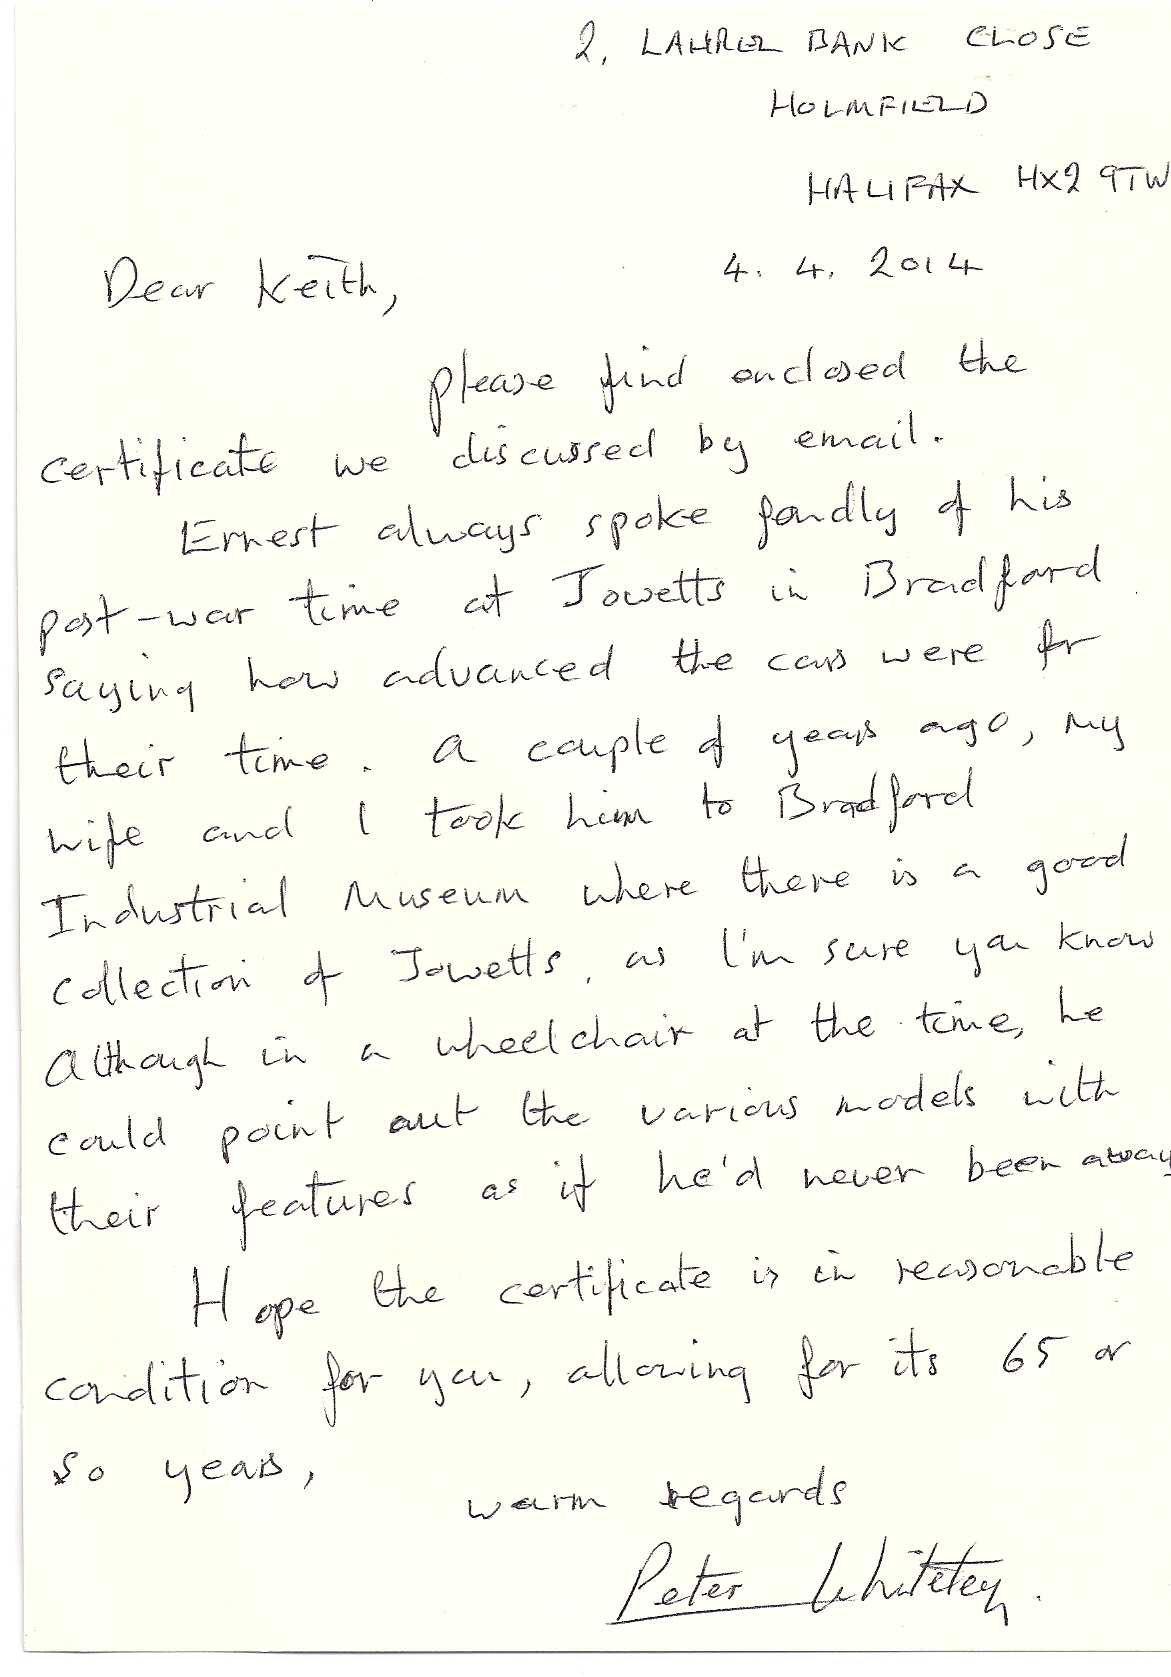 2, LAUREL BANK CLOSE
HOLMFIELD
HALIFAX HX2 9TW
4. 4. 2014
Dear Keith,
please find enclosed the
certificate we discussed by email.
Ernest always spoke fondly of his
post-war time at Jowetts in Bradford
saying how advanced the cars were for
their time. A couple of years ago, my
wife and I took him to Bradford
Industrial Museum where there is a good
collection of Jowetts, as I'm sure you know
Although in a wheelchair at the time, he
could point out the various models with
their features as if he'd never been away
Hope the certificate is in reasonable
condition for you, allowing for its 65 or
so years,
warm regards
Peter Whiteley.